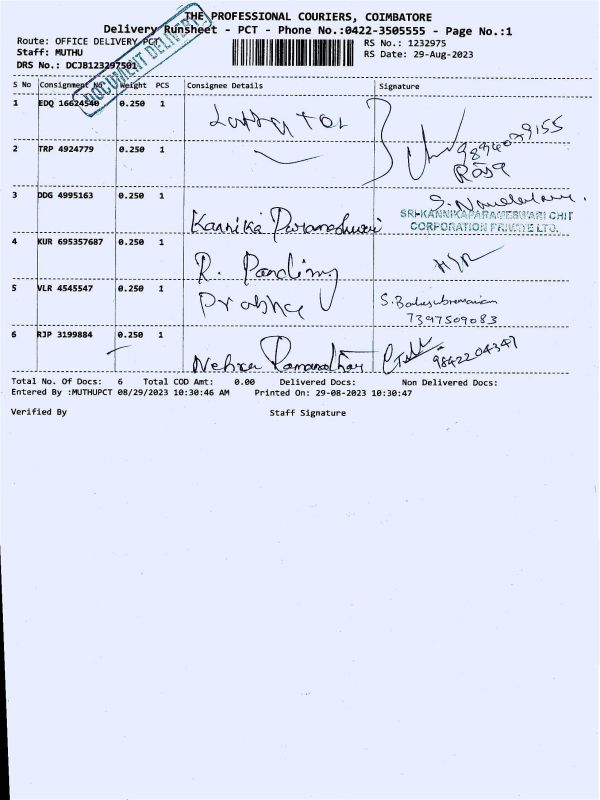 THE PROFESSIONAL COURIERS, COIMBATORE
Delivery Runsheet - PCT - Phone No.:0422-3505555 - Page No.:1
Route: OFFICE DELIVERY PCT
RS No.: 1232975
Staff: MUTHU
RS Date: 29-Aug-2023
DRS No.: DCJB123297501
DOCUMENT DELIVERY
S No Consignment No. Weight PCS Consignee Details Signature
1 EDQ 16624540 0.250 1
9894079155
2 TRP 4924779 0.250 1
Rose
3 DDG 4995163 0.250 1 Kannika Parameshwari
SRI KANNIKAPARAMESWARI CHIT
CORPORATION PRIVATE LTD.
4 KUR 695357687 0.250 1 R.
5 VLR 4545547 0.250 1 Prabhu S. Balasubramanian
7397509083
6 RJP 3199884 0.250 1 Nehru
9842204347
Total No. Of Docs: 6 Total COD Amt: 0.00 Delivered Docs: Non Delivered Docs:
Entered By :MUTHUPCT 08/29/2023 10:30:46 AM Printed On: 29-08-2023 10:30:47
Verified By Staff Signature